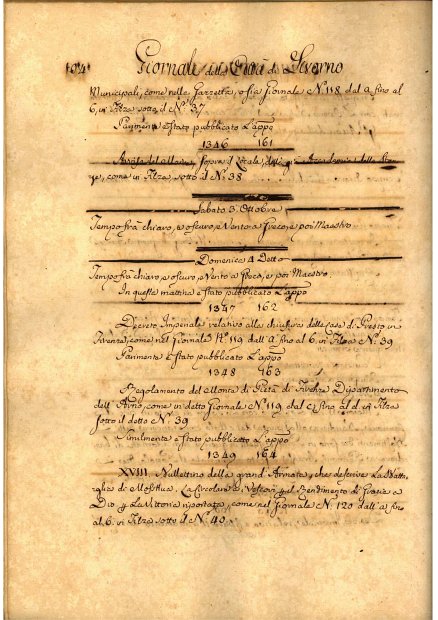 104 Giornale della Città di Livorno
Municipali, come nelle Gazzetta, o sia Giornale N.° 118 dal a fino al
6, in Filza sotto il N.° 37
Parimente è stato pubblicato L'appo
1346 161
Avviso del Maire, sopra il Locale, delle
, come in Filza, sotto il N.° 38
Sabato 3. Ottobre
Tempo frà chiaro, e oscuro, e Vento a Greco, e poi Maestro
Domenica 4 Detto
Tempo frà chiaro, e oscuro, e Vento a , e poi Maestro
In questa mattina è stato pubblicato L'appo
1347 162
Decreto Imperiale relativo alla chiusura delle Case di Presto in
Firenze, come nel Giornale N.° 119 dall'a fino al 6. in Filza N. 39
Parimente è stato pubblicato L'appo
1348 163
Regolamento del Monte di Pietà di Firenze Dipartimento
dell'Arno, come in detto Giornale N.° 119 dal c fino al d. in Filza
sotto il detto N.° 39
Similmente è stato pubblicato L'appo
1349 164
XVIII Bullettino della grand'Armata, che descrive La Batta-
glia di Mosckva, La Circolare a' Vescovi p il Rendimento di Grazie a
Dio p La Vittoria riportata, come nel Giornale N. 120 dall'a fino
al 6. in Filza sotto il N.° 40